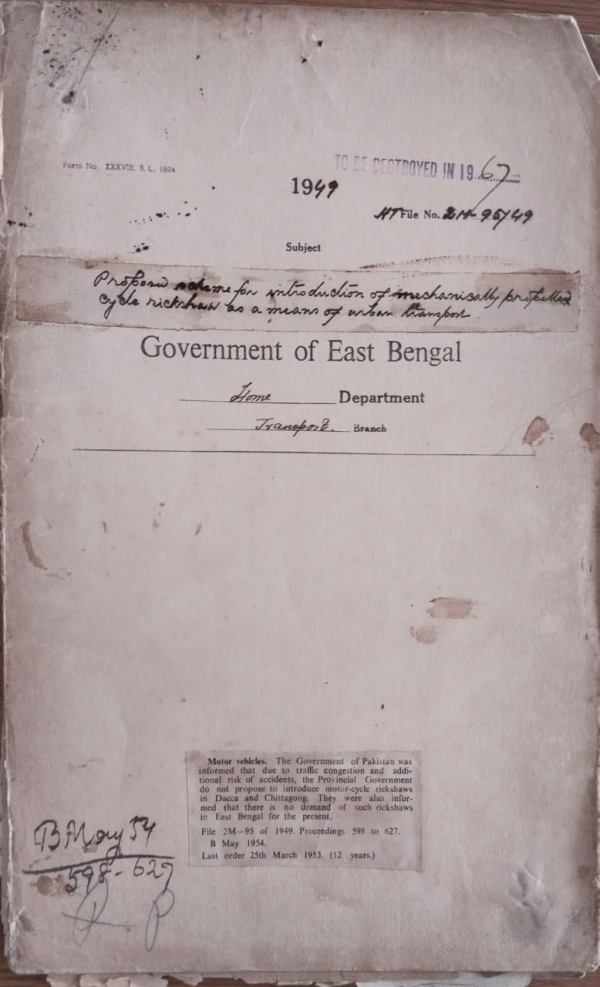 Form No. XXXVIII. S. L., 1924
TO BE DESTROYED IN 1967
1949
HT File No. 2M-95/49
Subject
Proposed scheme for introduction of mechanically propelled
cycle rickshaw as a means of urban transport.
Government of East Bengal
Home Department
Transport. Branch
Motor vehicles. The Government of Pakistan was
informed that due to traffic congestion and addi-
tional risk of accidents, the Provincial Government
do not propose to introduce motor-cycle rickshaws
in Dacca and Chittagong. They were also infor-
med that there is no demand of such rickshaws
in East Bengal for the present.
File 2M—95 of 1949. Proceedings 598 to 627.
B May 1954.
Last order 25th March 1953. (12 years.)
B May 54
598-627